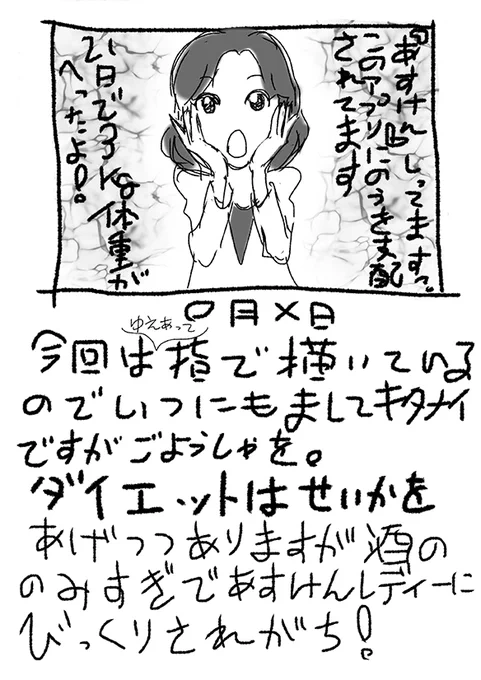 「あすけん」しってますっ。
このアプリにのうを支配
されてます
21日で3kg体重が
へったよ!。
〇月×日
ゆえあって
今回は指で描いている
のでいつにもましてキタナイ
ですがごようしゃを。
ダイエットはせいかを
あげつつありますが酒の
のみすぎであすけんレディーに
びっくりされがち!